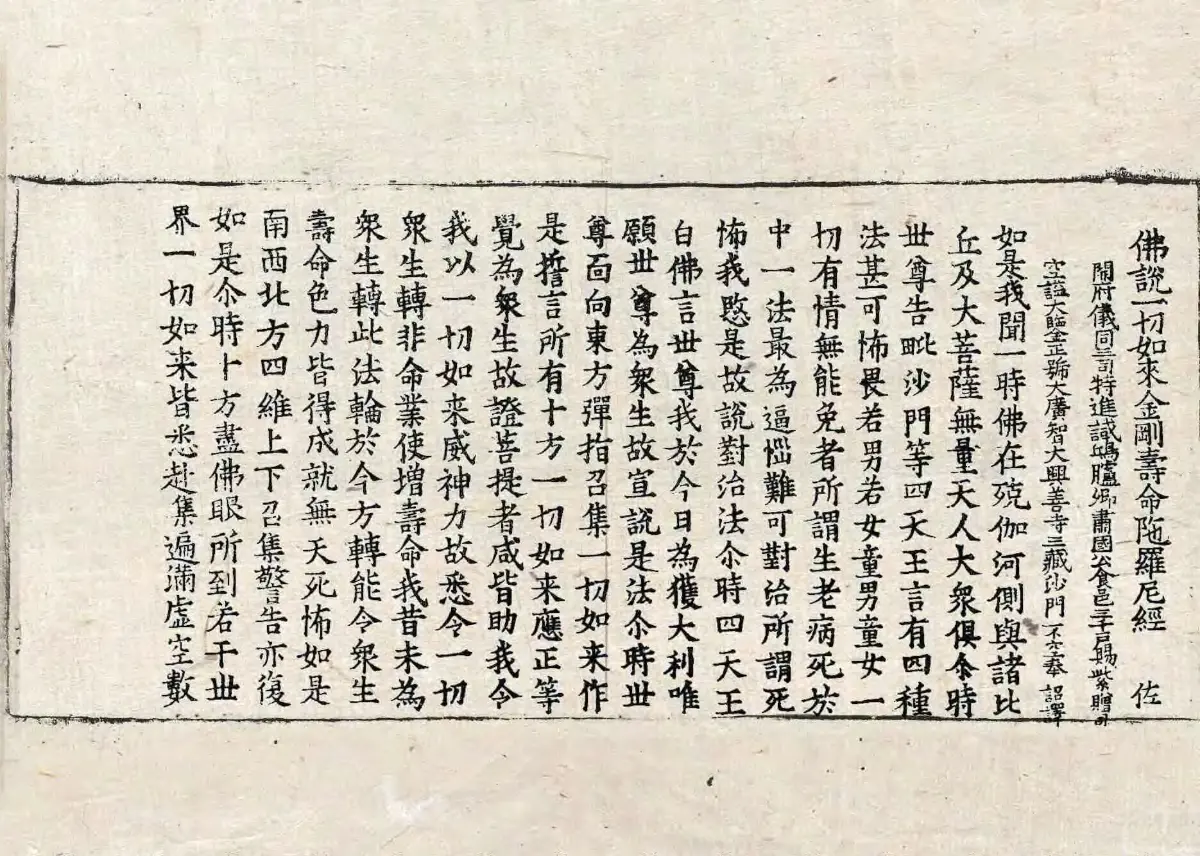 佛說一切如來金剛壽命陁羅尼經 佐
開府儀同三司特進試鴻臚卿肅國公食邑三千戶賜紫贈司
空謚大鑒正號大廣智大興善寺三藏沙門不空奉 詔譯
如是我聞一時佛在殑伽河側與諸比
丘及大菩薩無量天人大衆俱尒時
世尊告毗沙門等四天王言有四種
法甚可怖畏若男若女童男童女一
切有情無能免者所謂生老病死於
中一法最為逼惱難可對治所謂死
怖我愍是故說對治法尒時四天王
白佛言世尊我於今日為獲大利唯
願世尊為衆生故宣說是法尒時世
尊面向東方彈指召集一切如来作
是誓言所有十方一切如来應正等
覺為衆生故證菩提者咸皆助我令
我以一切如来威神力故悉令一切
衆生轉非命業使增壽命我昔未為
衆生轉此法輪於今方轉能令衆生
壽命色力皆得成就無夭死怖如是
南西北方四維上下召集警告亦復
如是尒時十方盡佛眼所到若干世
界一切如来皆悉赴集遍滿虛空數